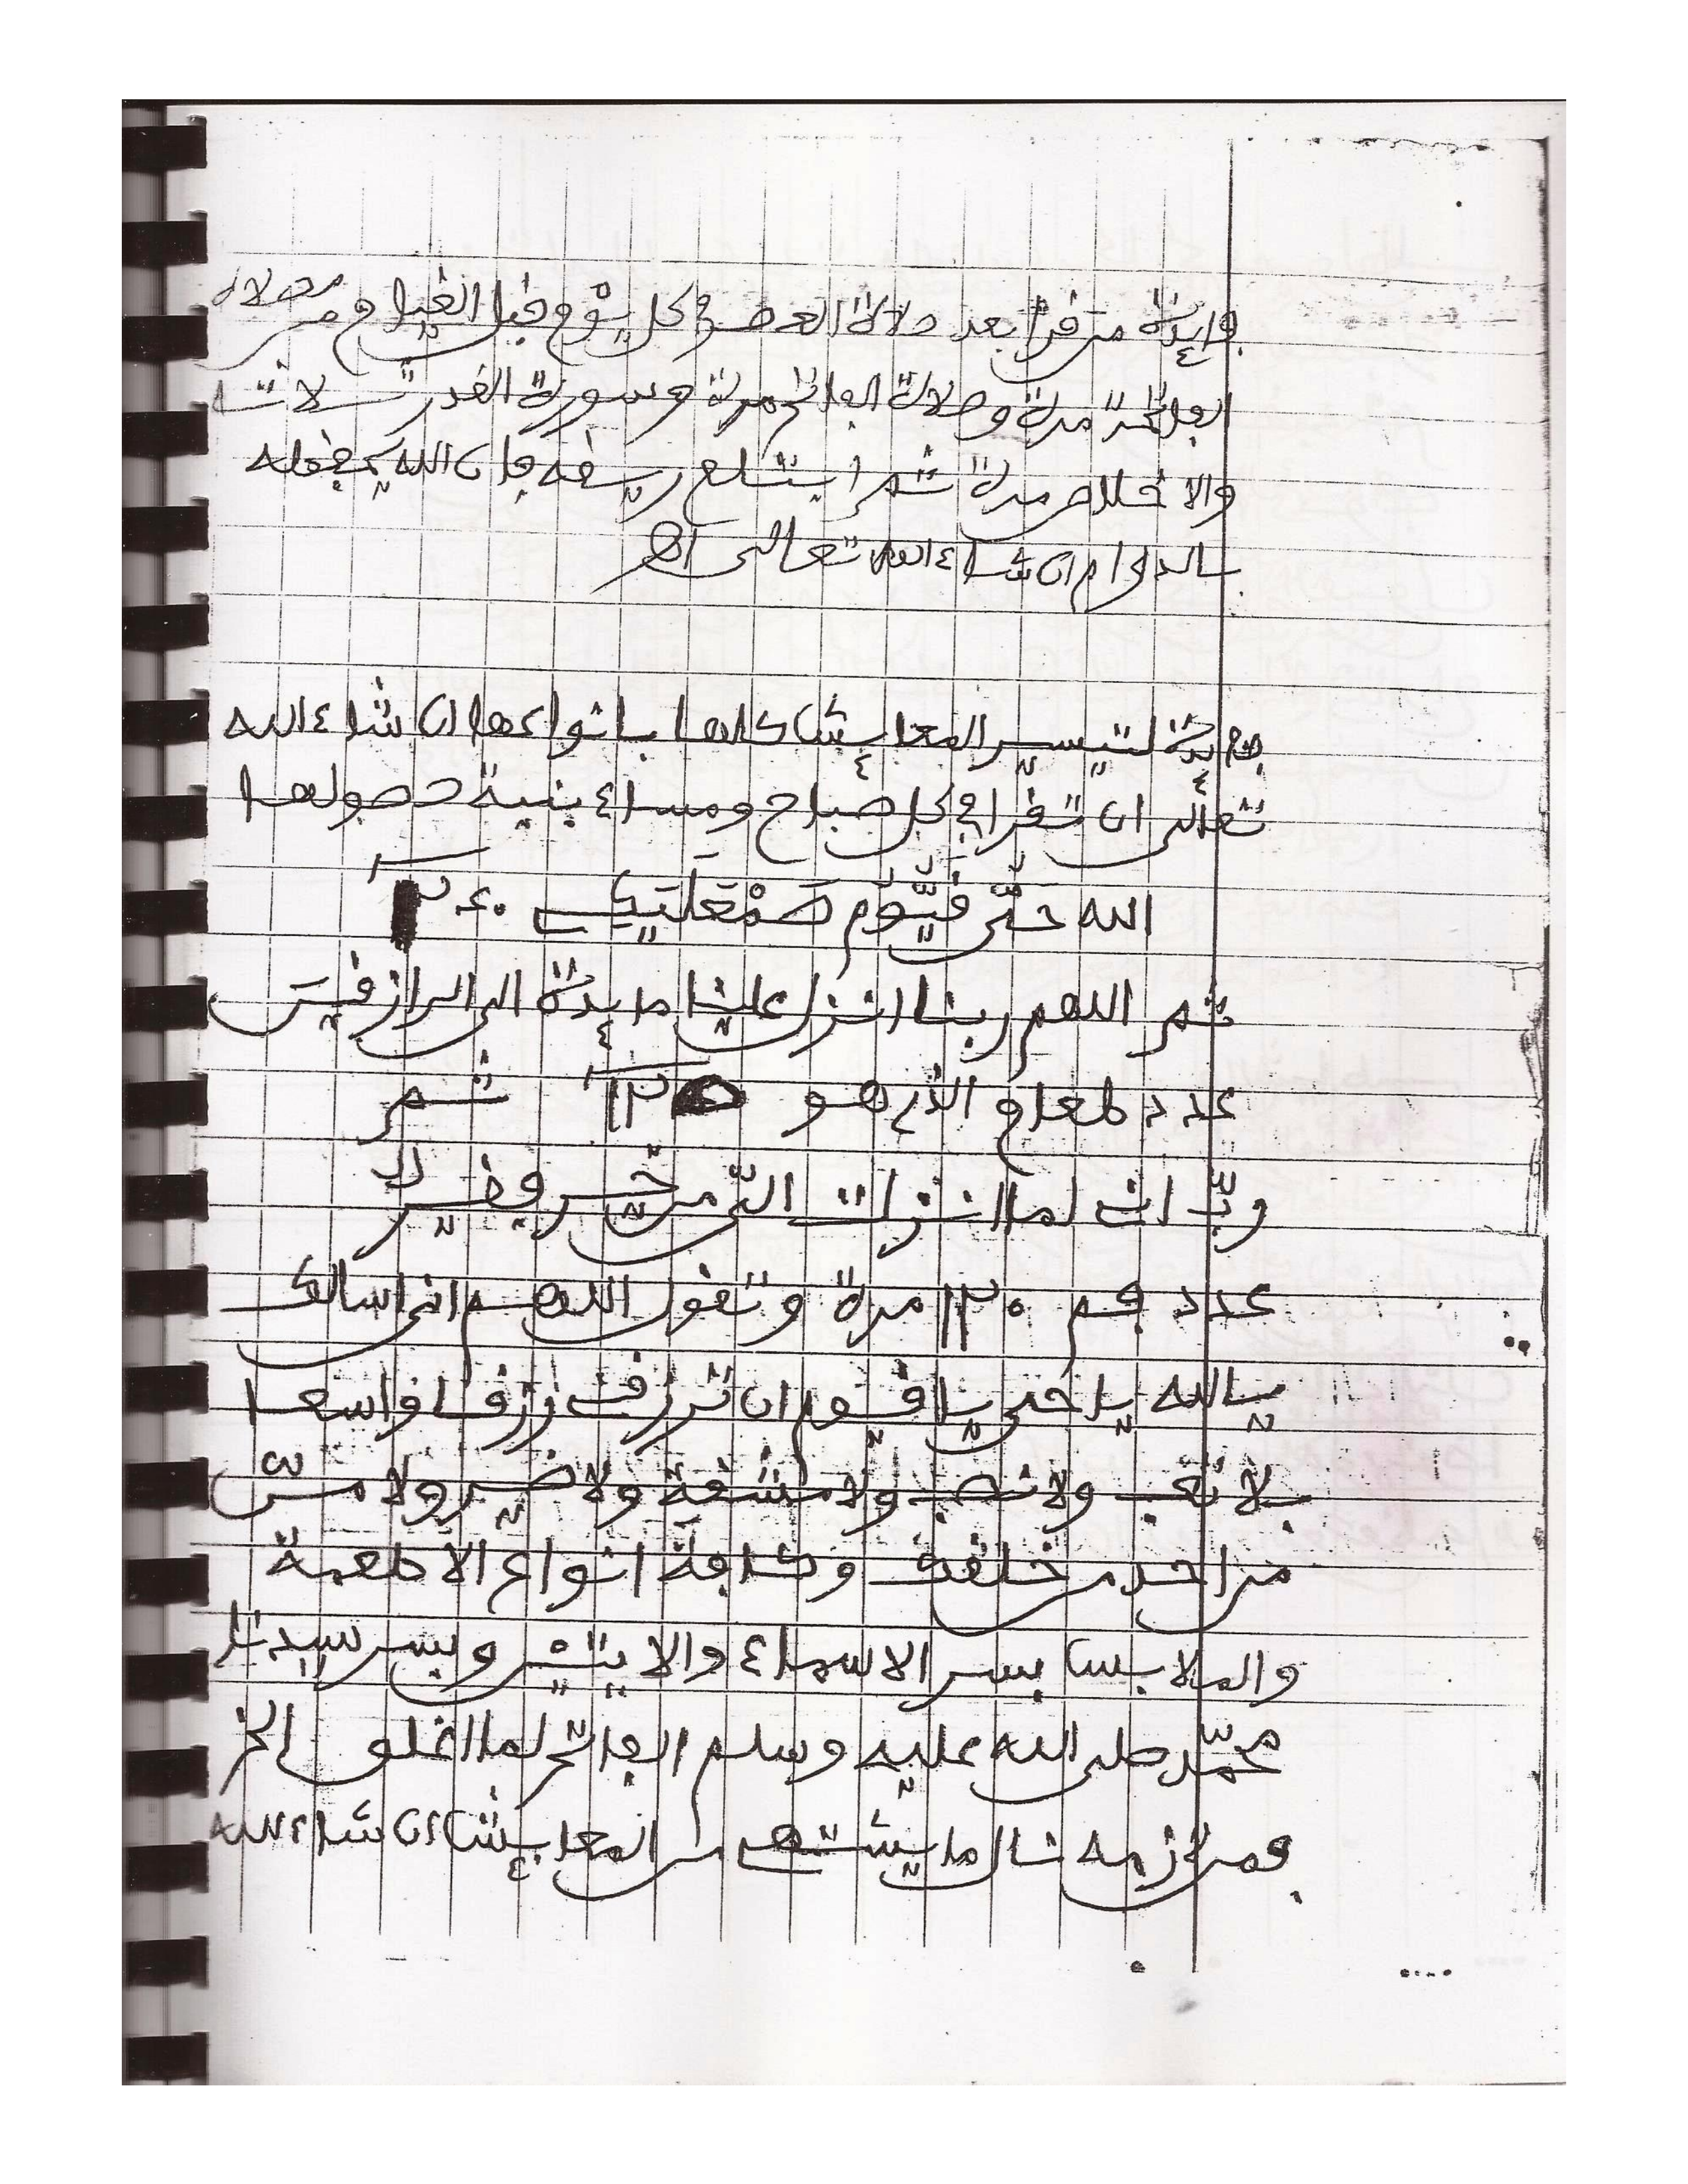 فايدة من قرأ بعد صلاة العصر في كل يوم قبل القيام من مصلاه
الفاتحة مرة وصلاة الفاتح مرة وسورة القدر ثلاث
والاخلاص مرة ثم ابتلع ريقه فان الله يحفظه
بالدوام ان شاء الله تعالى اهـ
فايدة لتيسير المعايش كلها بانواعها ان شاء الله
تعالى ان تقرا في كل صباح ومساء بنية حصولها
الله حيّ قيّوم
ثم اللهم ربنا انزل علينا مايدة الى الرازقين
عدد لمعام الذي هو ثم
ربّ اني لما انزلت اليّ من خير فقير
عدد فم ١٣٠ مرة وتقول اللهم اني اسالك
يالله يا حي يا قيوم ان ترزقني رزقا واسعا
بلا تعب ولا نصب ولا مشقة ولا ضير ولا منّ
من احد من خلقك وكافة انواع الاطعمة
والملابس بسر الاسماء والايتين وبسر سيدنا
محمّد صلى الله عليه وسلم الفاتح لما اغلق الخ
فمن لازمه نال ما يشتهي من المعايش ان شاء الله